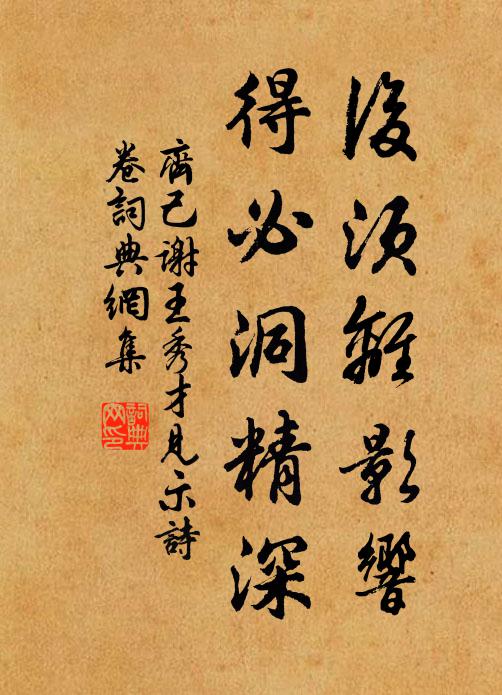 後須離影響
得必洞精深
齊己謝王秀才見示詩
卷詞典網集
詞典
网印